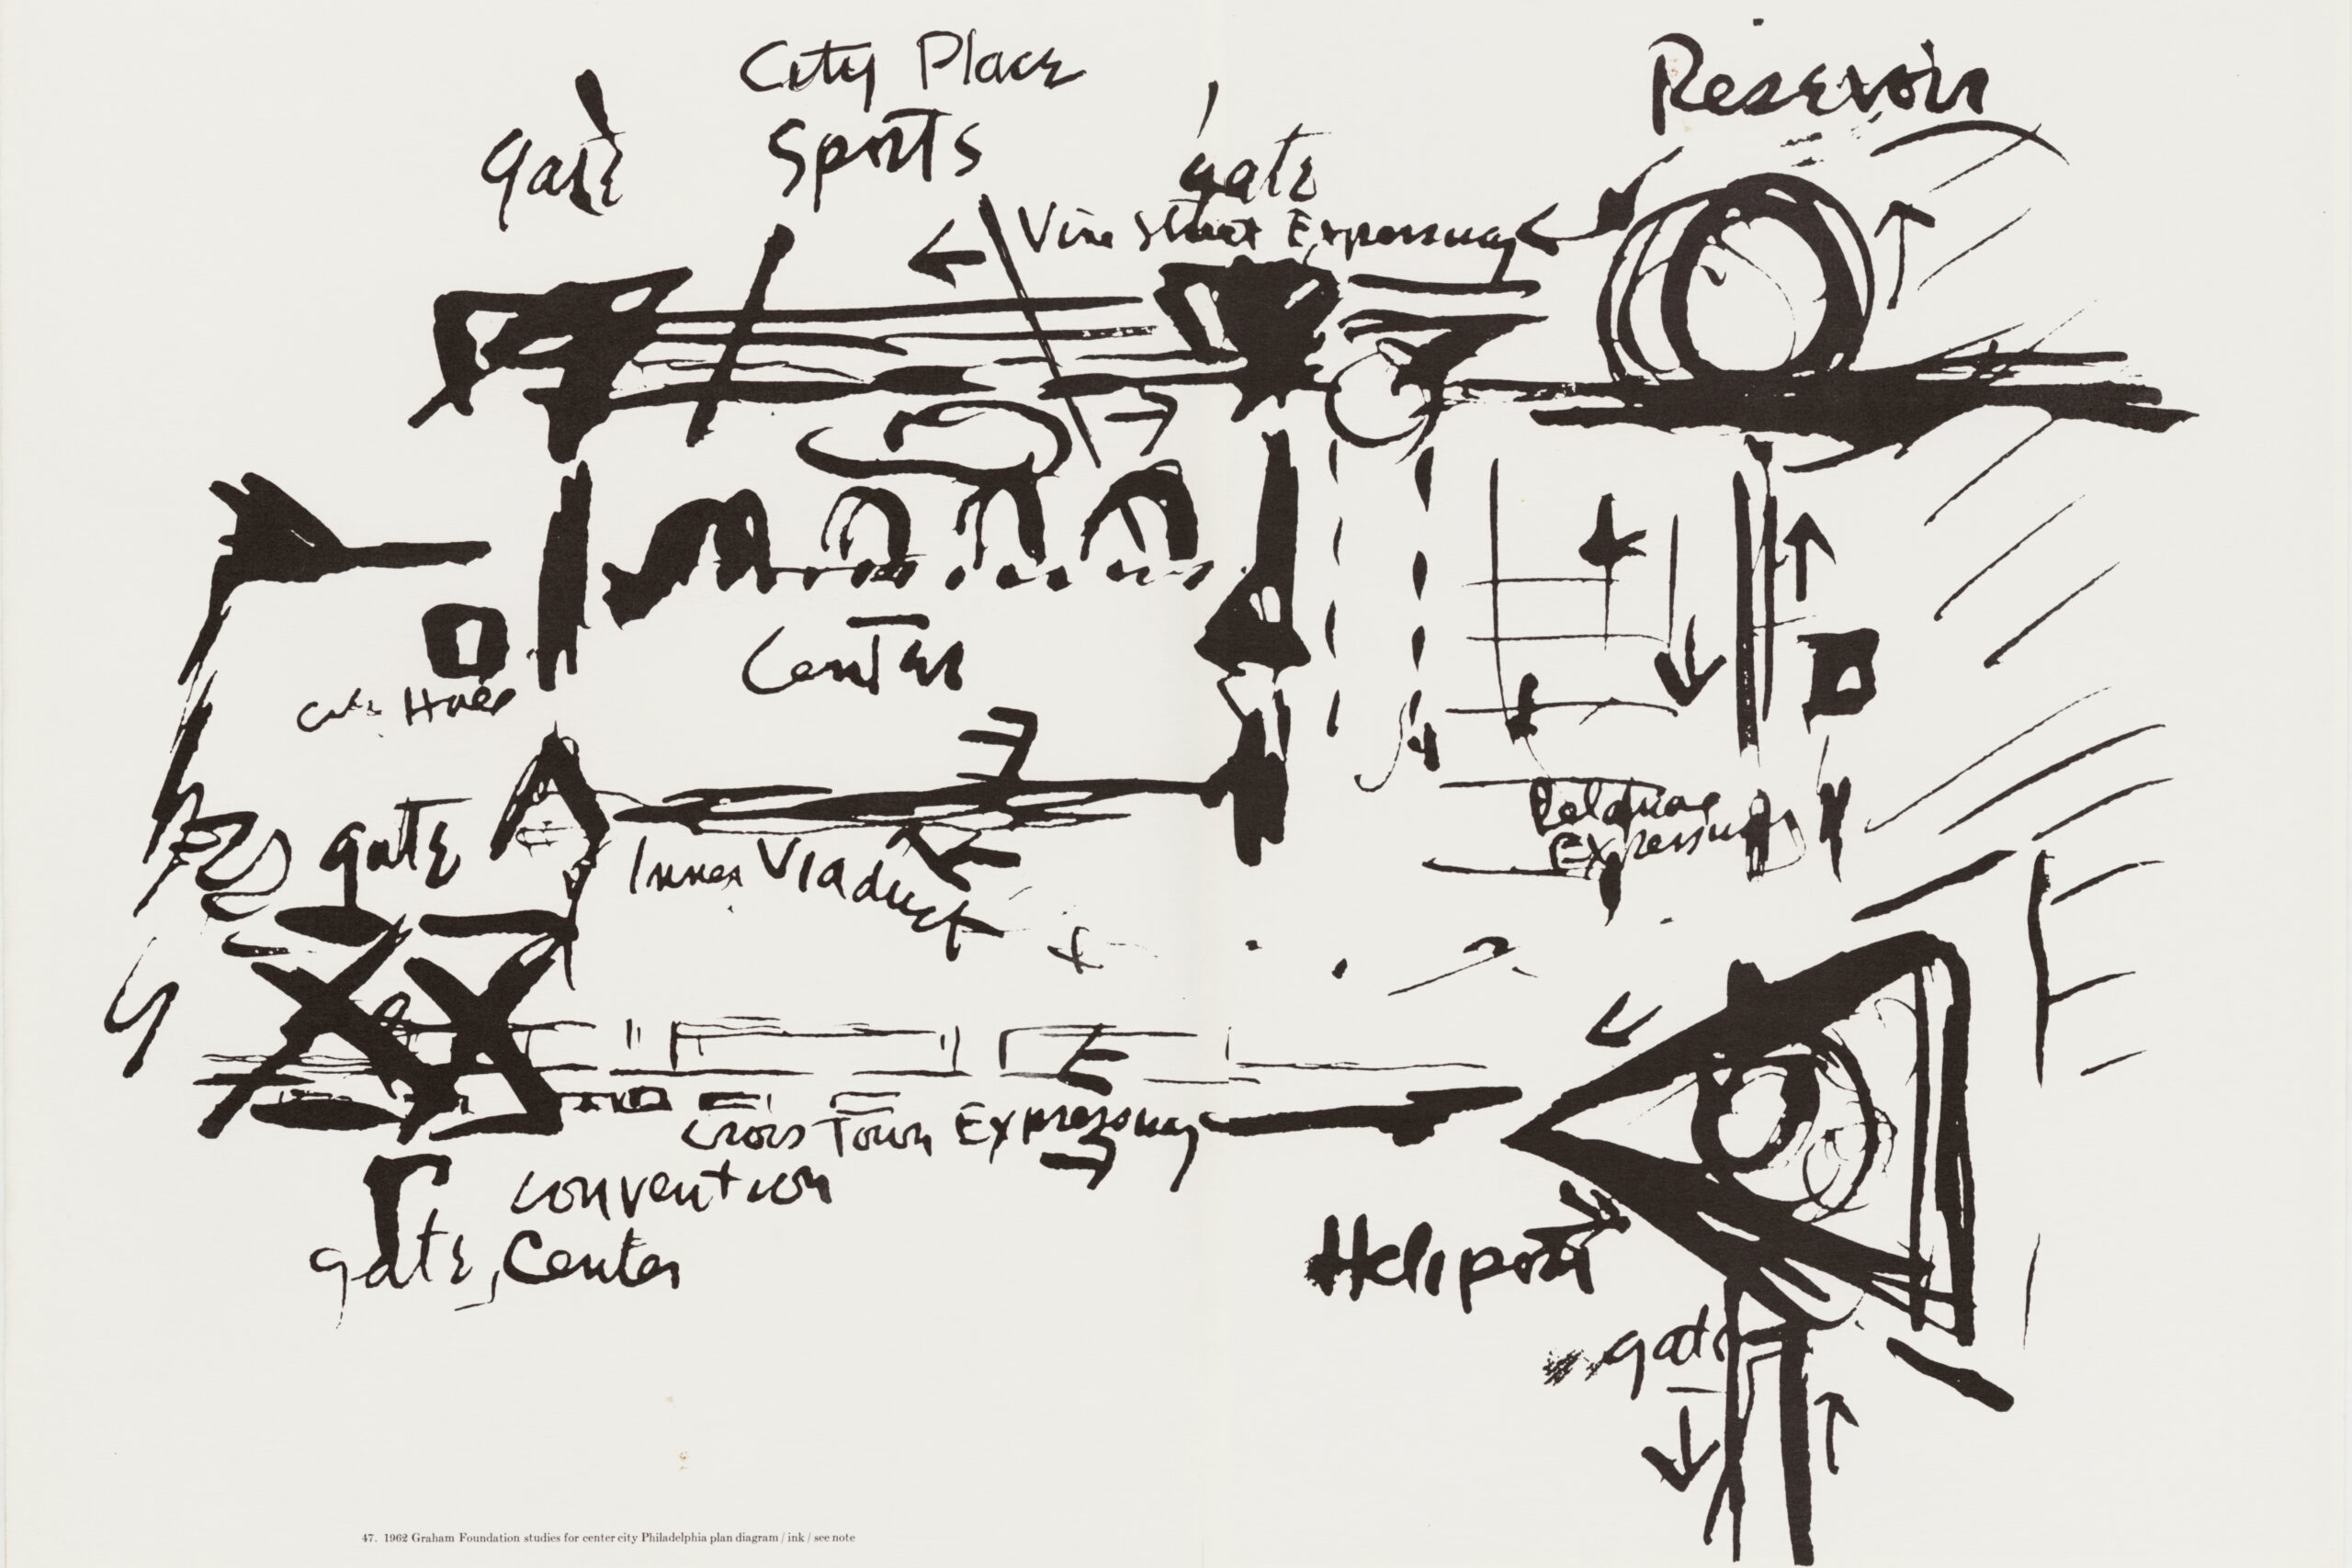 City Place
Reservoir
Sports
gate
gate
Vine Street Expressway
Center
City Hall
gate
Inner Viaduct
Delaware
Expressway
Cross Town Expressway
convention
gate, Center
Heliport
gate
47. 1962 Graham Foundation studies for center city Philadelphia plan diagram / ink / see note